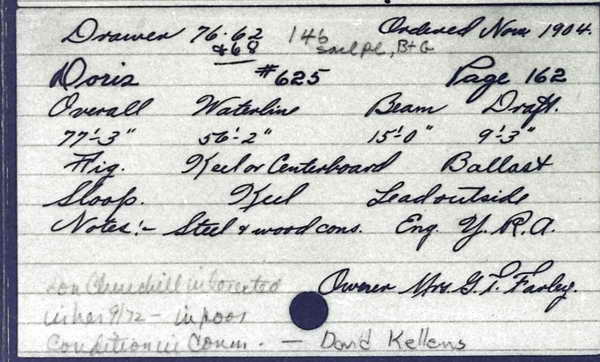 Drawer 76.62 146 Ordered Nov. 1904.
& 68 Sail Pl, B+G
Doris #625 Page 162
Overall Waterline Beam Draft.
77'-3" 56'-2" 15'-0" 9'-3"
Fig. Keel or Centerboard Ballast
Sloop. Keel Lead outside
Notes:- Steel & wood cons. Eng. Y.R.A.
Don Churchill interested Owner Mrs. G. P. Farley.
in her 9/72 - in poor
condition in Conn. - David Kellens